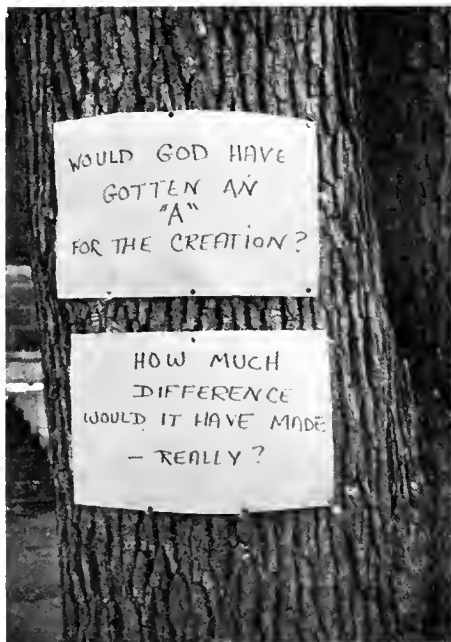 WOULD GOD HAVE
GOTTEN AN
"A"
FOR THE CREATION?
HOW MUCH
DIFFERENCE
WOULD IT HAVE MADE
– REALLY?